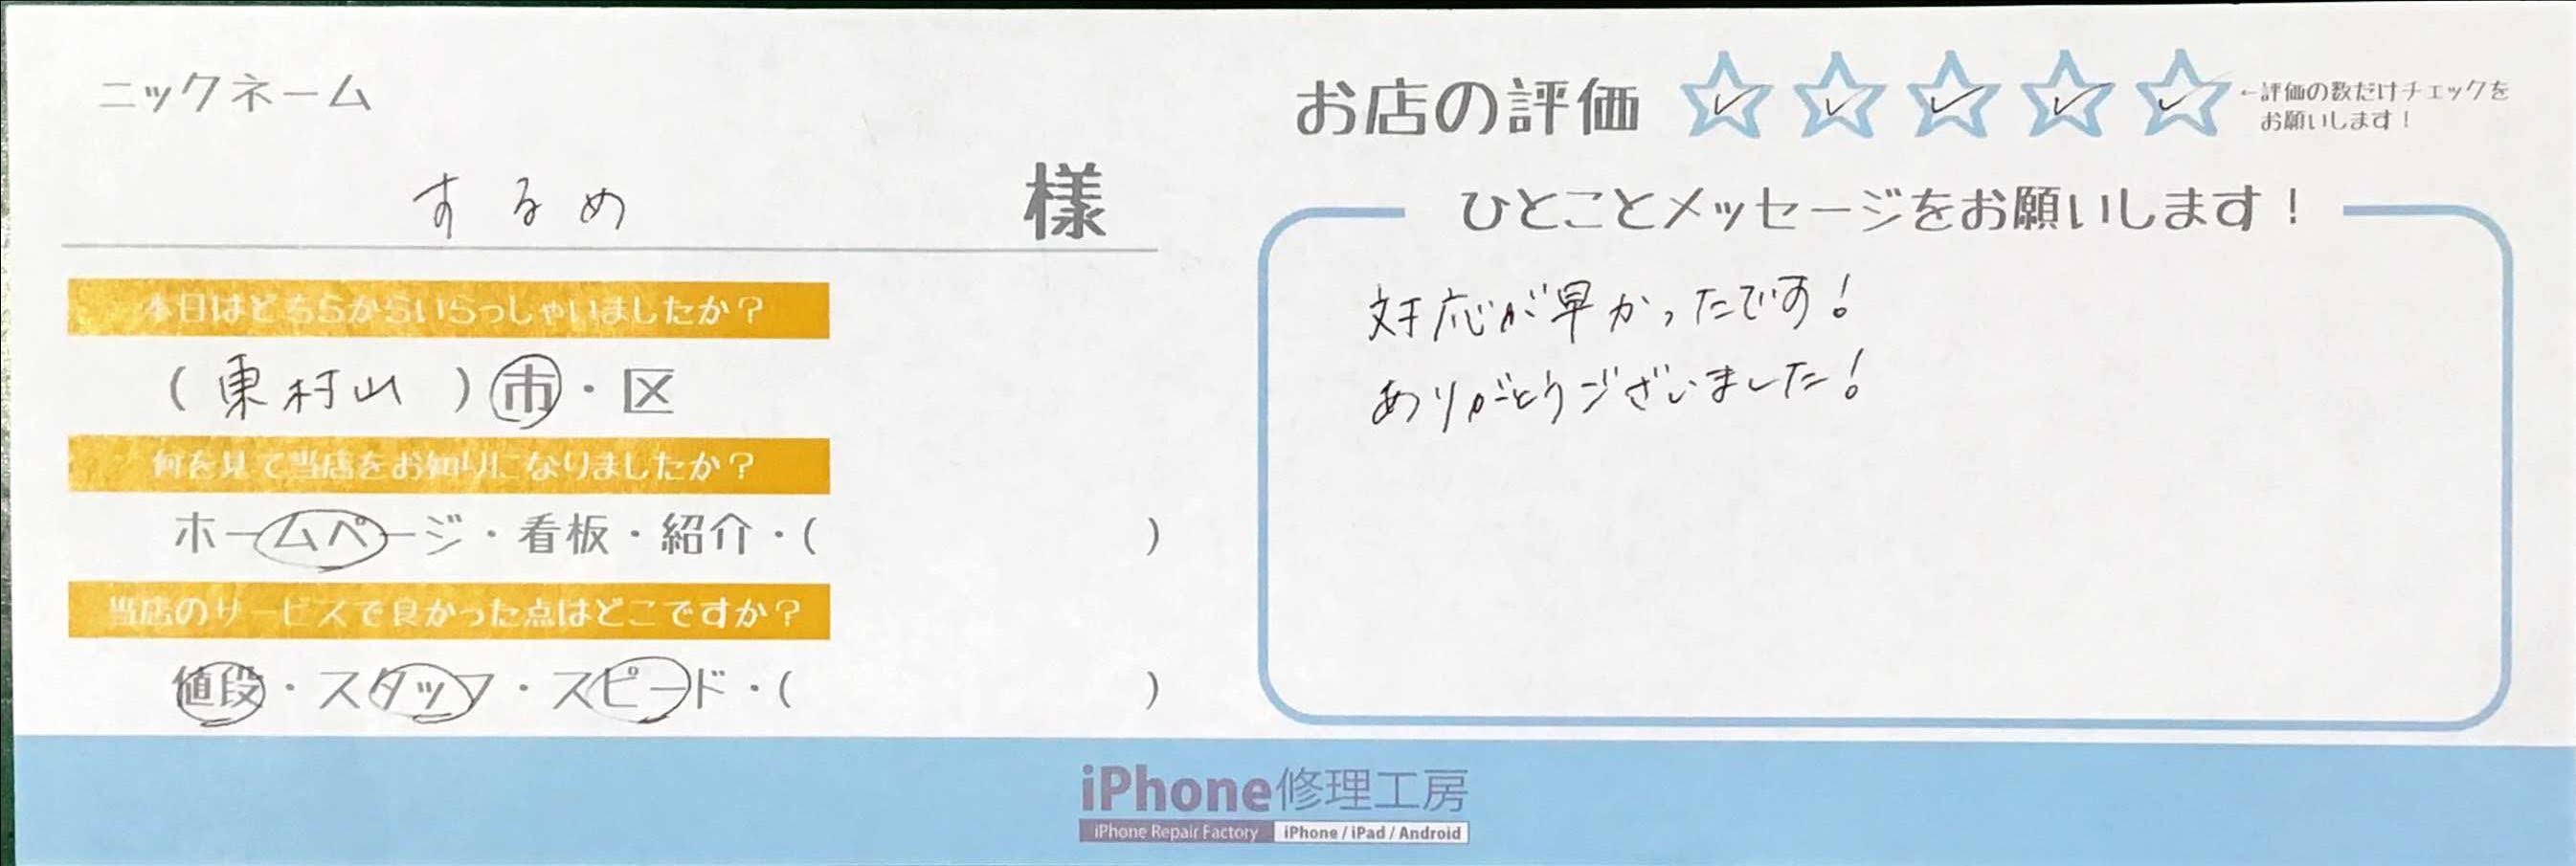 ニックネーム
するめ 様
本日はどちらからいらっしゃいましたか？
( 東村山 ) 市・区
何を見て当店をお知りになりましたか？
ホームページ・看板・紹介・( )
当店のサービスで良かった点はどこですか？
値段・スタッフ・スピード・( )
お店の評価
←評価の数だけチェックを
お願いします！
ひとことメッセージをお願いします！
対応が早かったです！
ありがとうございました！
iPhone修理工房
iPhone Repair Factory iPhone / iPad / Android